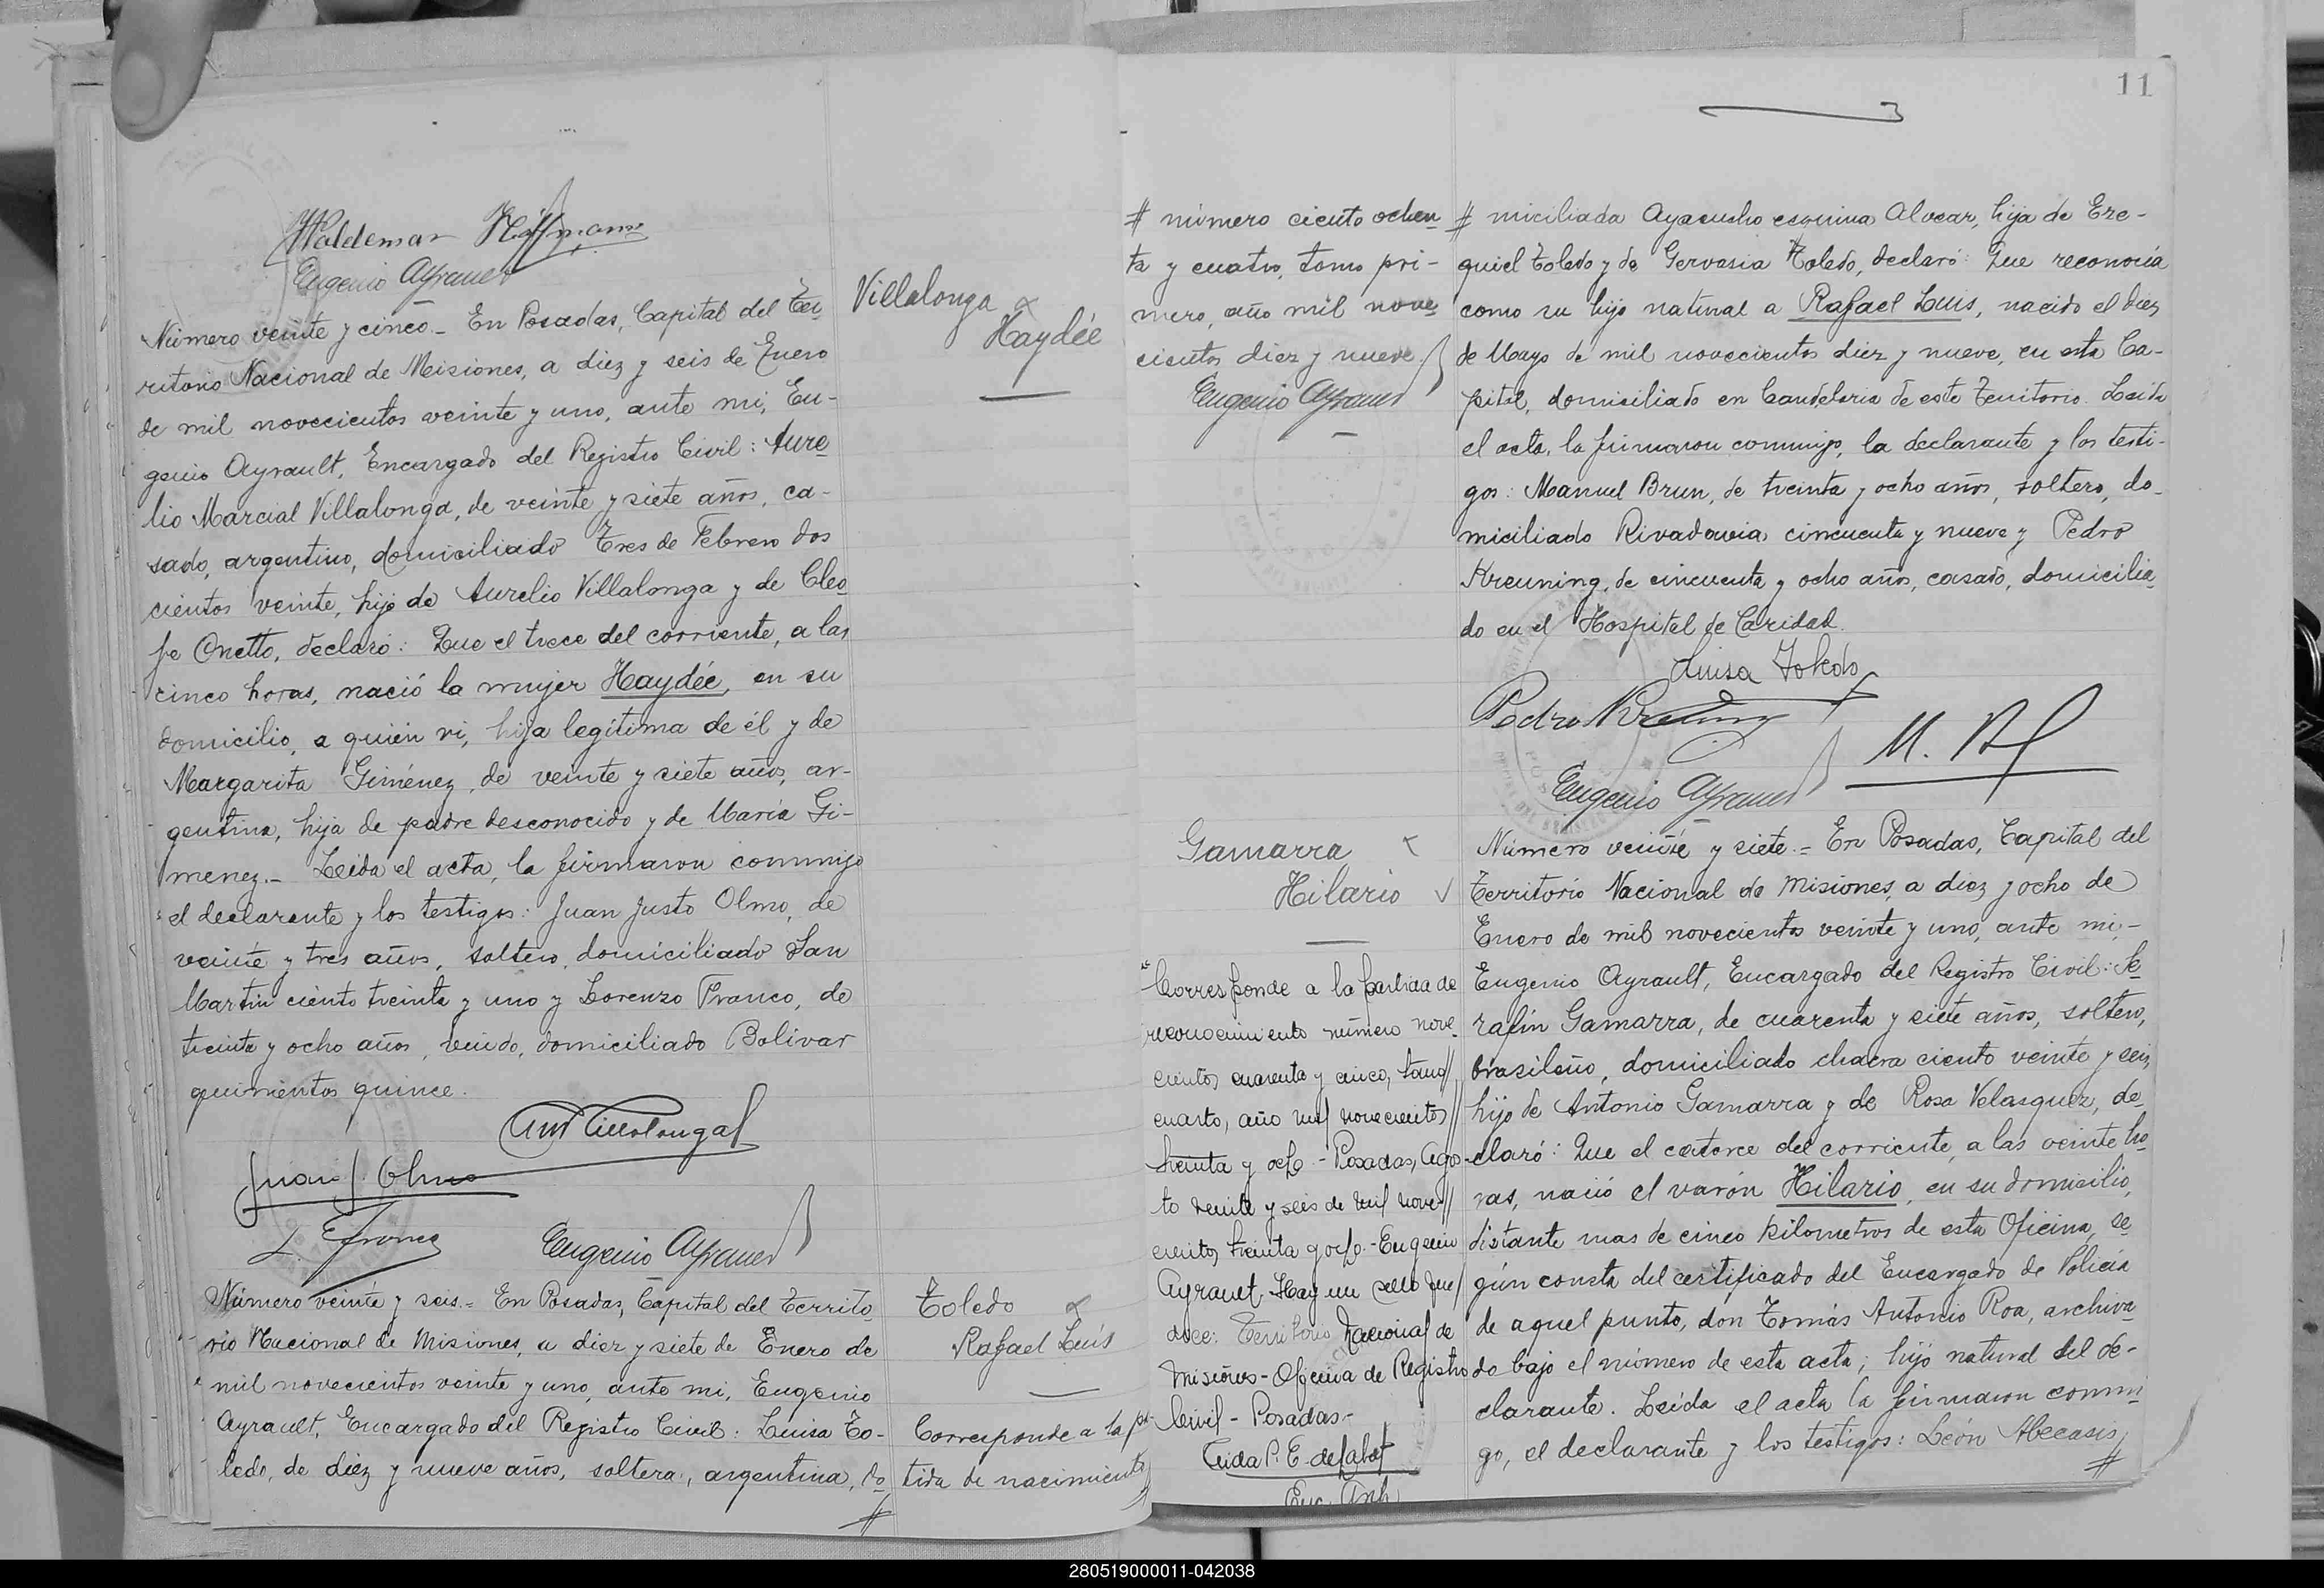 Waldemar Hoffmann
Eugenio Ayrault
Número veinte y cinco.- En Posadas, Capital del Te-
rritorio Nacional de Misiones, a diez y seis de Enero
de mil novecientos veinte y uno, ante mi, Eu-
genio Ayrault, Encargado del Registro Civil: Aure
lio Marcial Villalonga, de veinte y siete años, ca-
sado, argentino, domiciliado Tres de Febrero dos
cientos veinte, hijo de Aurelio Villalonga y de Cleo
fe Onetto, declaró: Que el trece del corriente, a las
cinco horas, nació la mujer Haydée, en su
domicilio, a quién vi, hija legítima de él y de
Margarita Giménez, de veinte y siete años, ar-
gentina, hija de padre desconocido y de María Gi-
menez.- Leída el acta, la firmaron conmigo
el declarante y los testigos: Juan Justo Olmo, de
veinte y tres años, soltero, domiciliado San
Martin ciento treinta y uno y Lorenzo Franco, de
treinta y ocho años, viudo, domiciliado Bolivar
quinientos quince.
Juan J. Olmo
Eugenio Ayrault
Villalonga
Haydée
Número veinte y seis.= En Posadas, Capital del Territo
rio Nacional de Misiones, a diez y siete de Enero de
mil novecientos veinte y uno, ante mi, Eugenio
Ayrault, Encargado del Registro Civil: Luisa To-
ledo, de diez y nueve años, soltera, argentina, do
#
Toledo
Rafael Luis
Corresponde a la par
tida de nacimiento
11
# número ciento ochen
ta y cuatro, tomo pri-
mero, año mil nove
cientos diez y nueve.
Eugenio Ayrault
# miciliada Ayacucho esquina Alvear, hija de Eze-
quiel Toledo y de Gervasia Toledo, declaró: Que reconocía
como su hijo natural a Rafael Luis, nacido el diez
de Mayo de mil novecientos diez y nueve, en esta Ca-
pital, domiciliado en Candelaria de este Territorio. Leída
el acta, la firmaron conmigo, la declarante y los testi-
gos: Manuel Brun, de treinta y ocho años, soltero, do-
miciliado Rivadavia cincuenta y nueve y Pedro
Kreuning, de cincuenta y ocho años, casado, domicilia
do en el Hospital de Caridad.
Luisa Toledo
Pedro Kreuning
Eugenio Ayrault
Gamarra
Hilario
Corresponde a la partida de
reconocimiento número nove
cientos cuarenta y cinco, tomo
cuarto, año mil novecientos
treinta y ocho.- Posadas, Agos-
to veinte y seis de mil nove
cientos treinta y ocho.- Eugenio
Ayrault. Hay un sello que
dice: Territorio Nacional de
Misiones - Oficina de Registro
Civil - Posadas -
Número veinte y siete.= En Posadas, Capital del
Territorio Nacional de Misiones, a diez y ocho de
Enero de mil novecientos veinte y uno, ante mi,-
Eugenio Ayrault, Encargado del Registro Civil: Se
rafín Gamarra, de cuarenta y siete años, soltero,
brasileño, domiciliado chacra ciento veinte y seis,
hijo de Antonio Gamarra y de Rosa Velasquez, de
claró: Que el catorce del corriente, a las veinte ho
ras, nació el varón Hilario, en su domicilio,
distante mas de cinco kilometros de esta Oficina, se
gún consta del certificado del Encargado de Policía
de aquel punto, don Tomás Antonio Roa, archiva
do bajo el número de esta acta; hijo natural del de-
clarante. Leída el acta la firmaron conmi
go, el declarante y los testigos: León Abecasis,
#
280519000011-042038